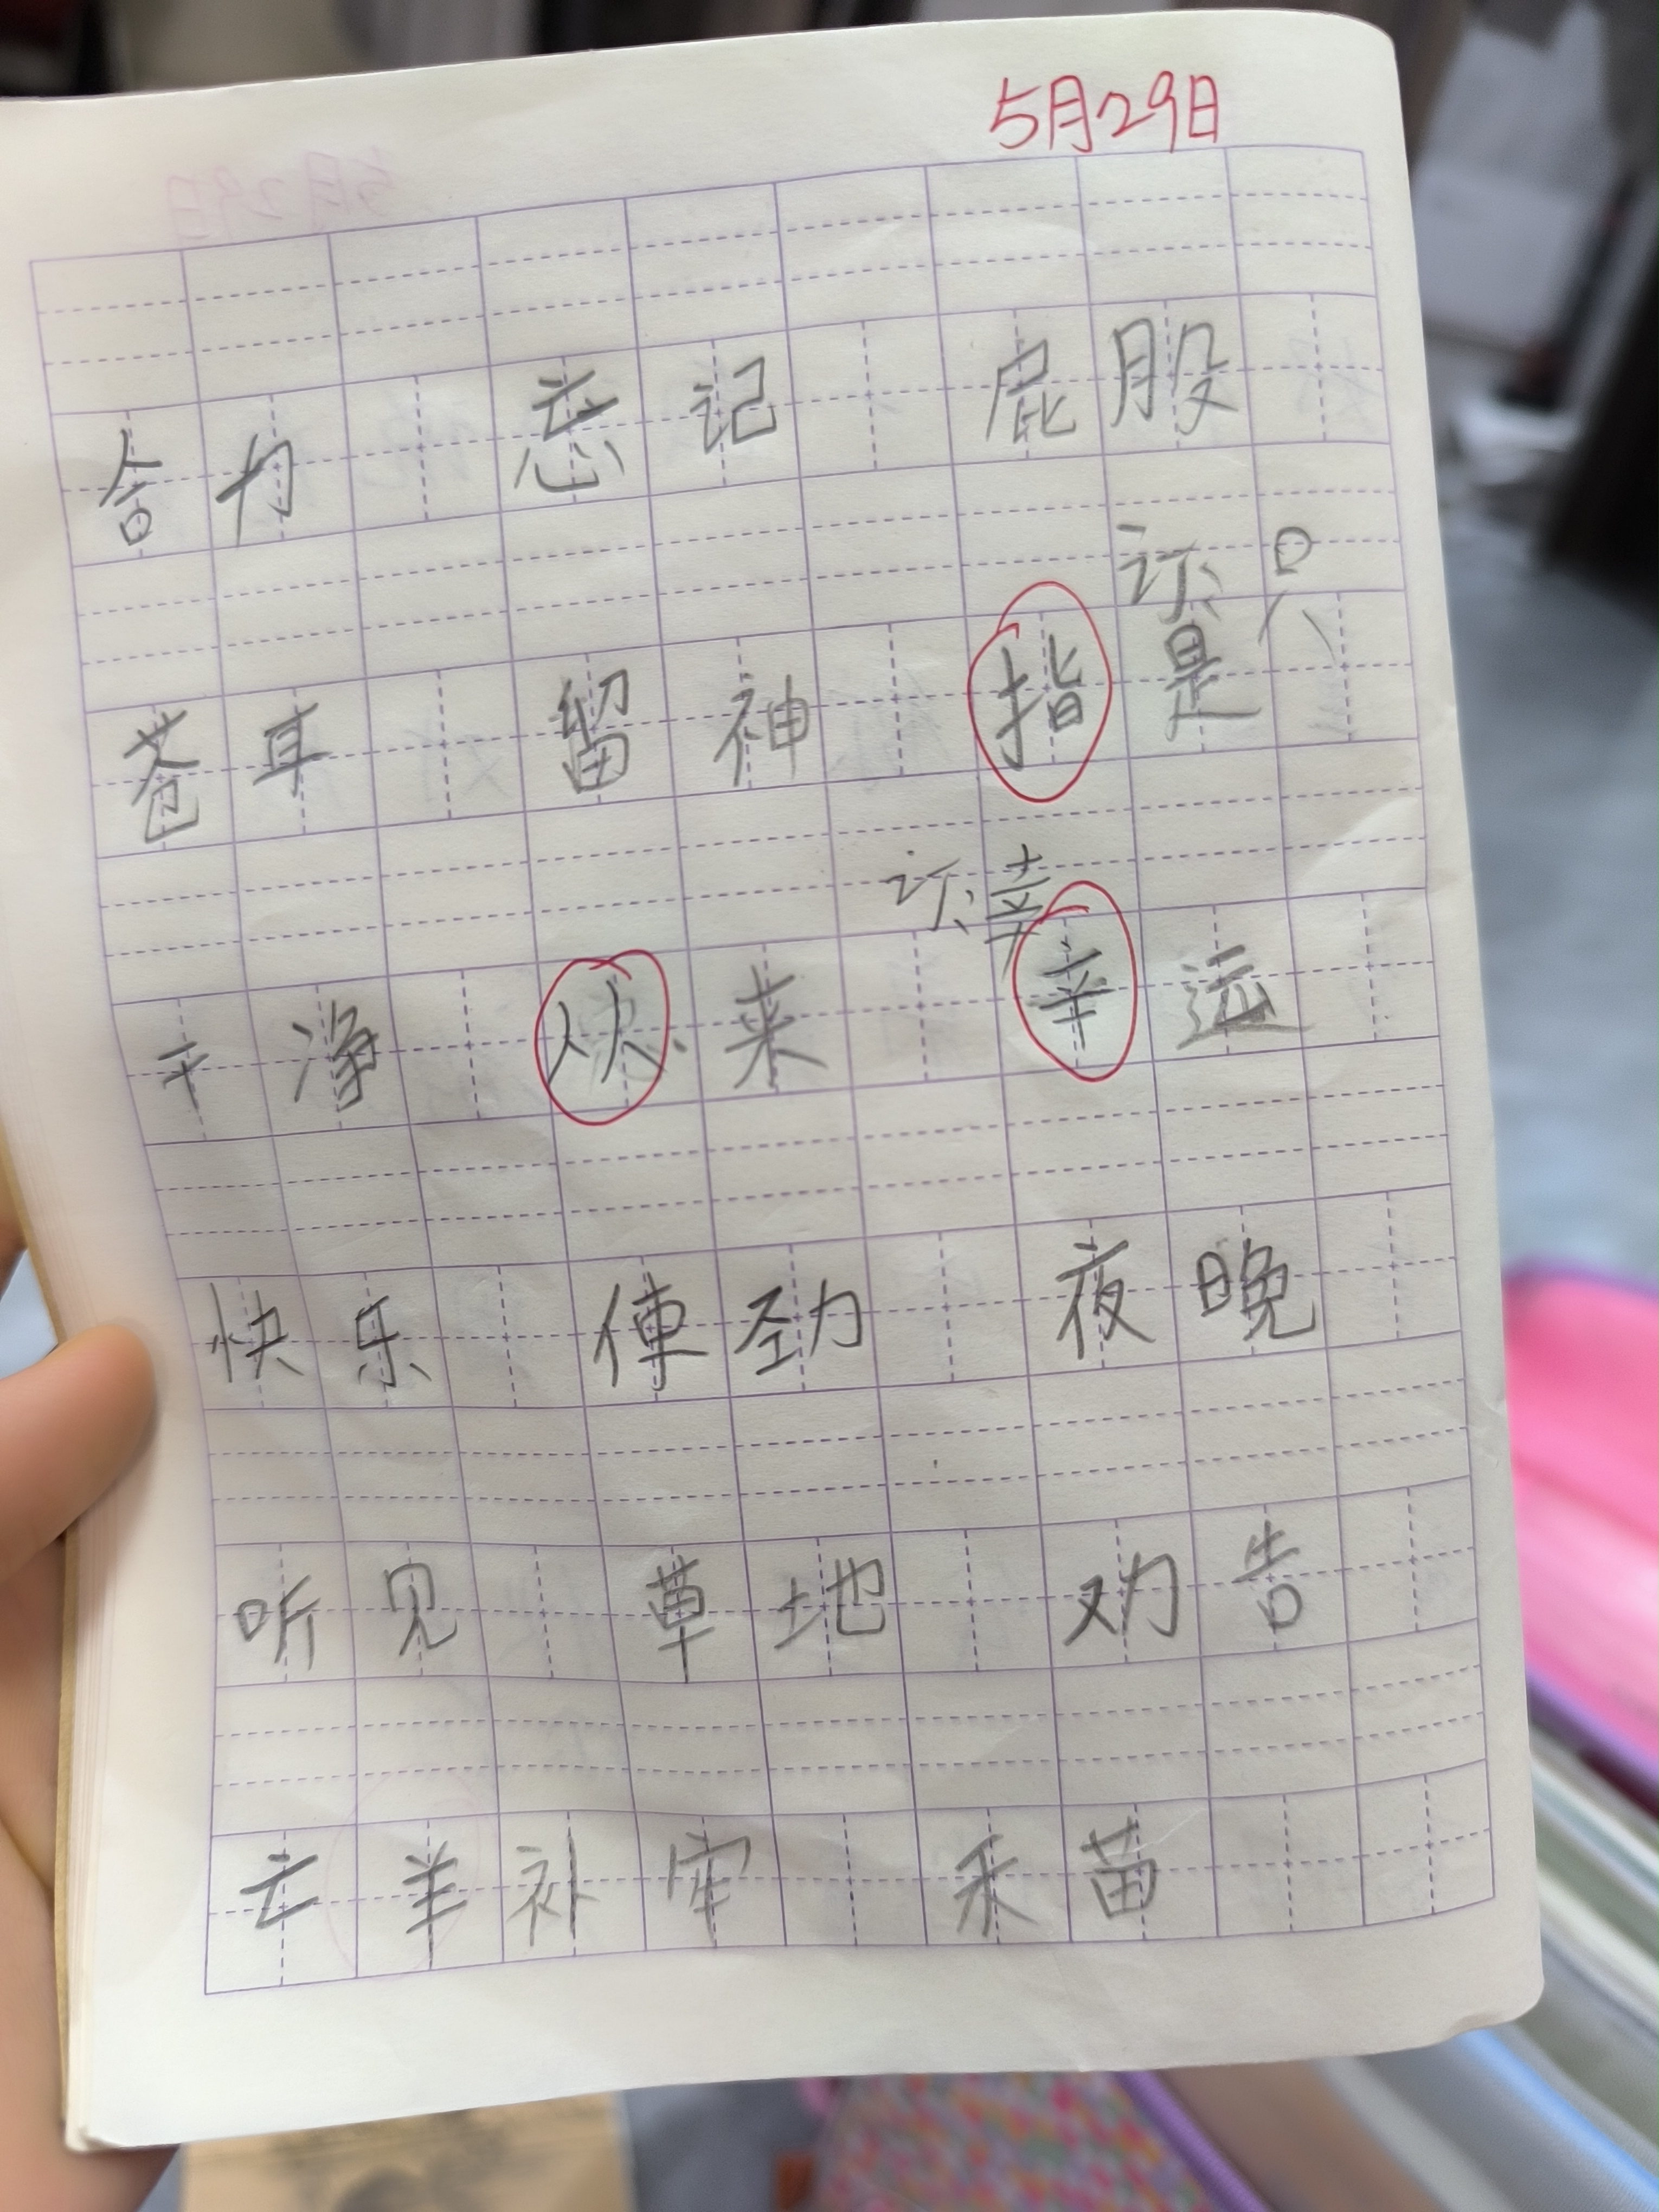 5月29日
合力 忘记 屁股
识只
苍耳 留神 指是
识幸
干净 从来 幸运
快乐 使劲 夜晚
听见 草地 劝告
亡羊补牢 禾苗